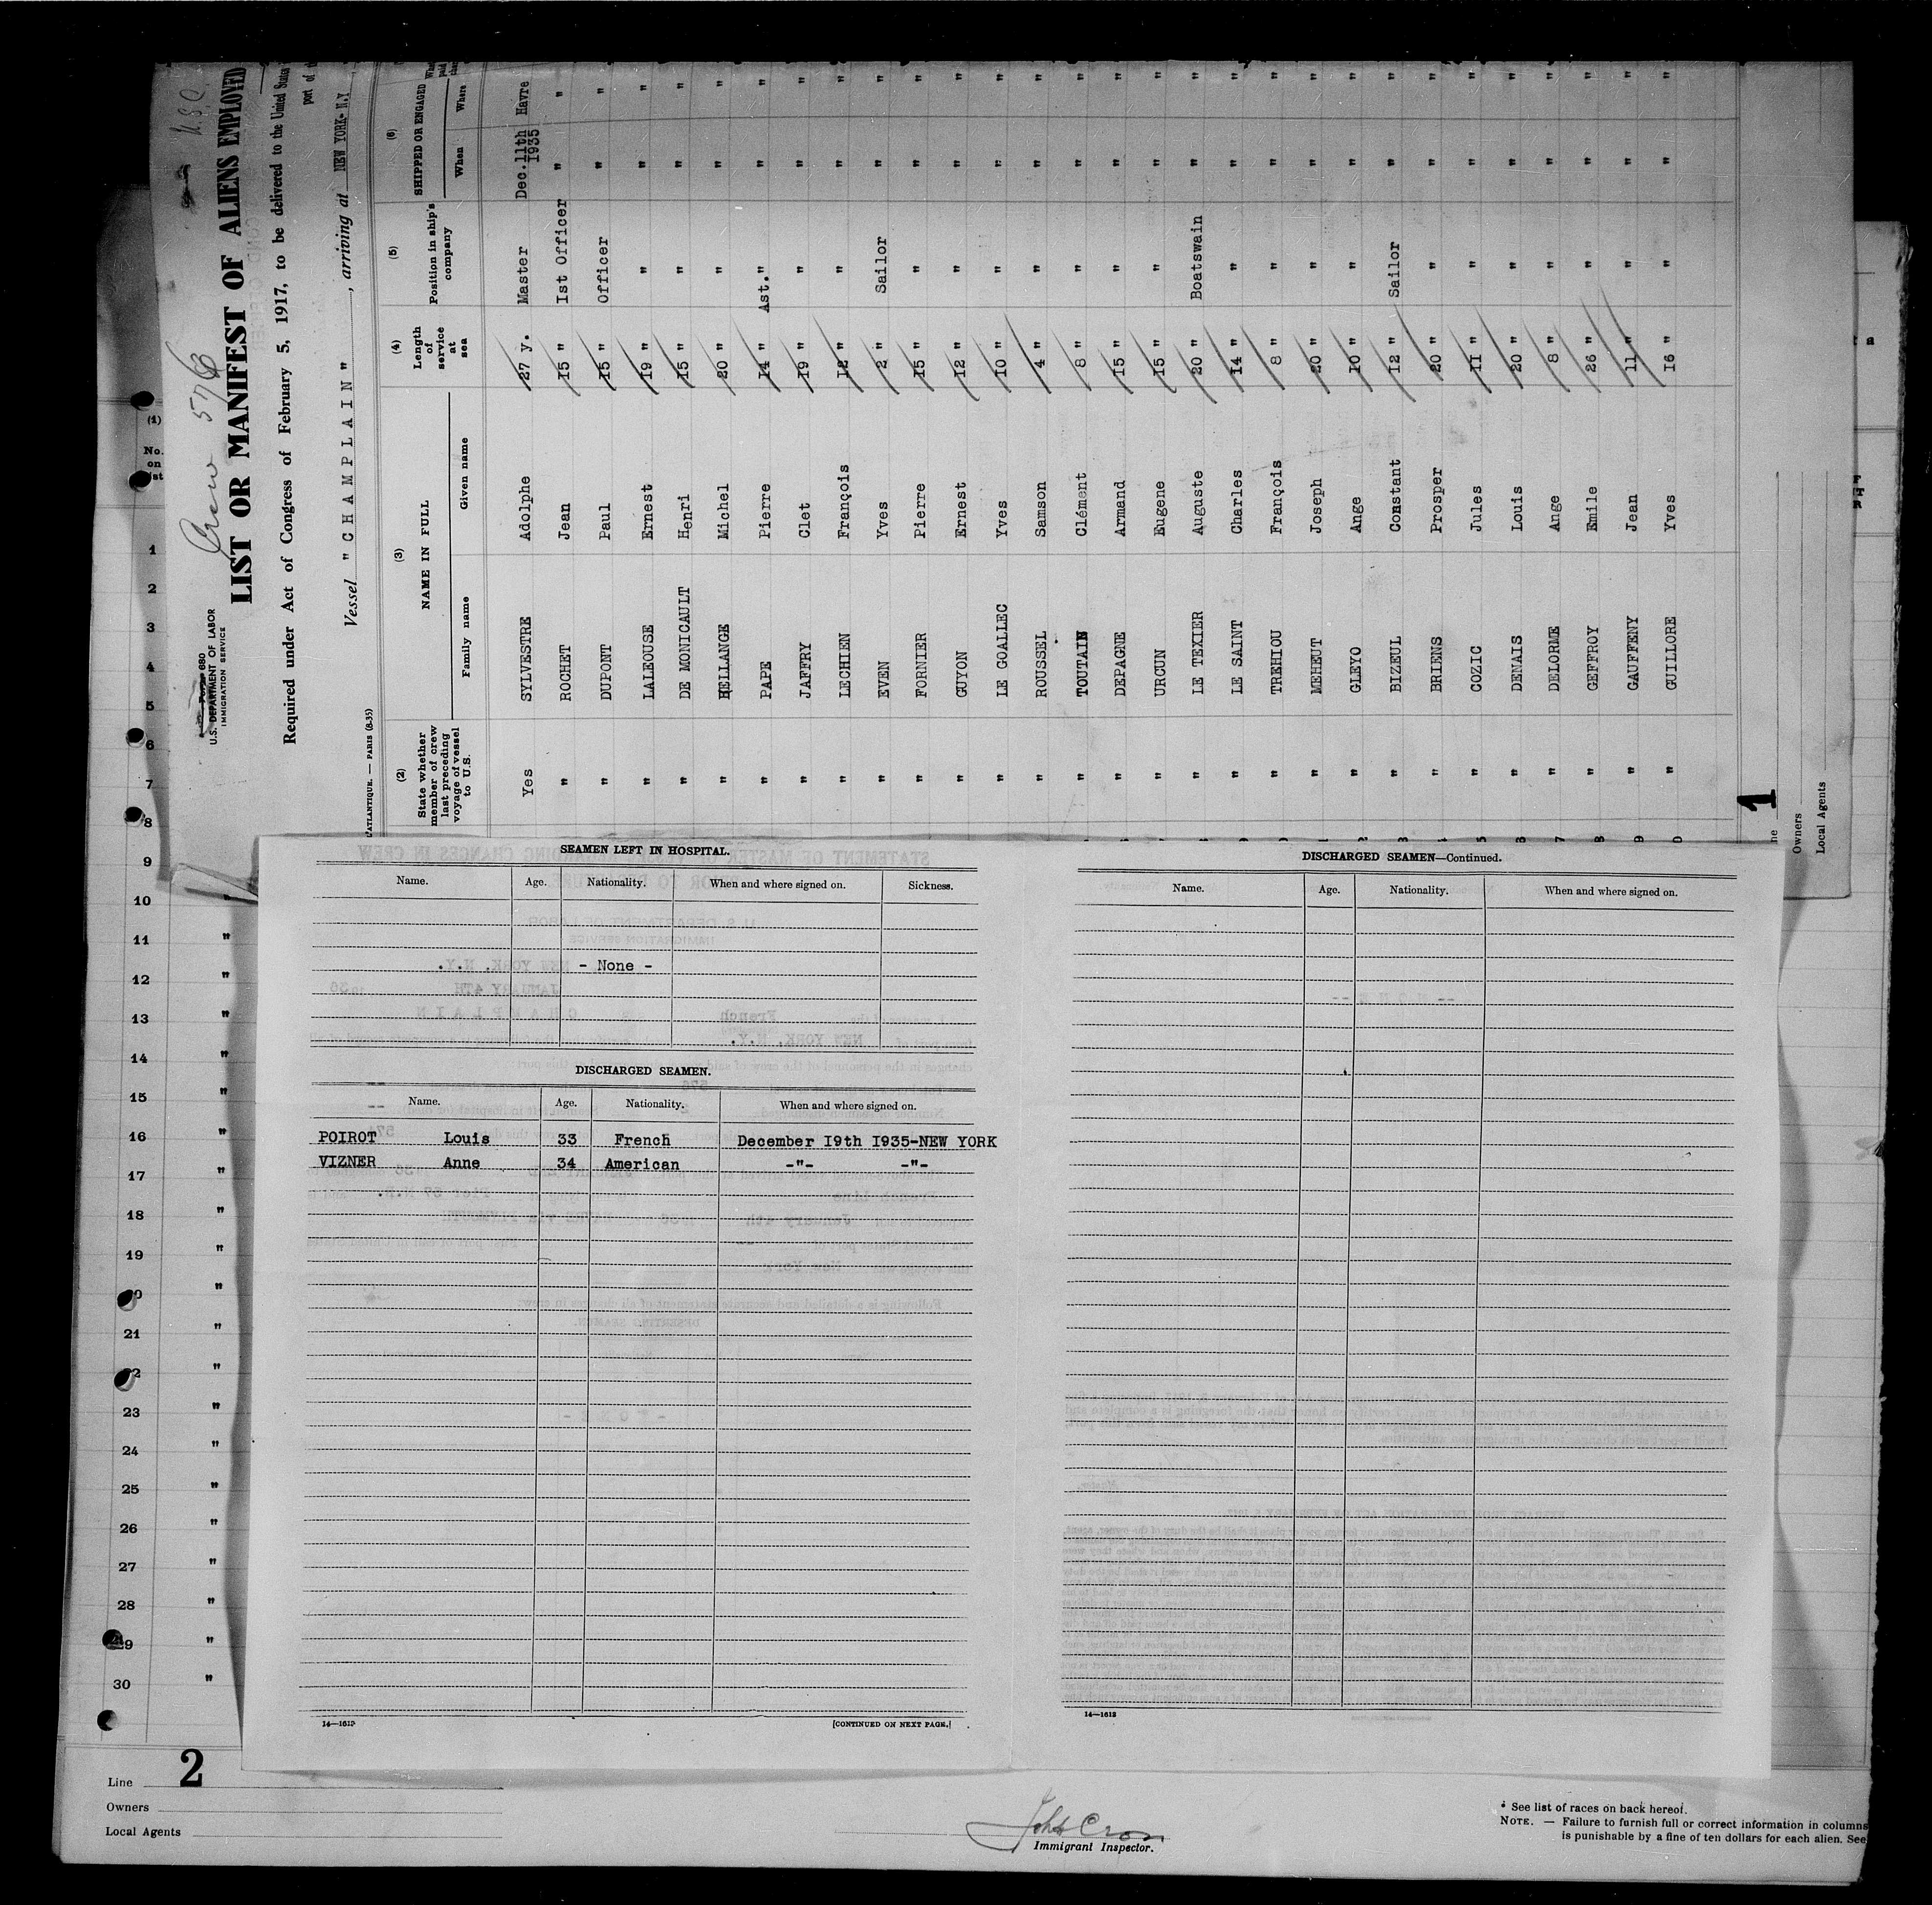 Crew 576
U.S.C.
Form 680
U.S. DEPARTMENT OF LABOR
IMMIGRATION SERVICE
LIST OR MANIFEST OF ALIENS EMPLOYED
Required under Act of Congress of February 5, 1917, to be delivered to the United States
port of
Vessel "CHAMPLAIN", arriving at NEW YORK- N.Y
L'ATLANTIQUE. — PARIS (8-35)
(2) (3) (4) (5) (6)
State whether member of crew last preceding voyage of vessel to U.S. NAME IN FULL Length of service at sea Position in ship's company SHIPPED OR ENGAGED
Family name Given name When Where
Yes SYLVESTRE Adolphe 27 y. Master Dec. 11th 1935 Havre
" ROCHET Jean 15 " Ist Officer " "
" DUPONT Paul 15 " Officer " "
" LALEOUSE Ernest 19 " " " "
" DE MONICAULT Henri 15 " " " "
" HELLANGE Michel 20 " " " "
" PAPE Pierre 14 " Ast." " "
" JAFFRY Clet 19 " " " "
" LECHIEN François 12 " " " "
" EVEN Yves 2 " Sailor " "
" FORNIER Pierre 15 " " " "
" GUYON Ernest 12 " " " "
" LE GOALLEC Yves 10 " " " "
" ROUSSEL Samson 4 " " " "
" TOUTAIN Clément 8 " " " "
" DEPAGNE Armand 15 " " " "
" URCUN Eugene 15 " " " "
" LE TEXIER Auguste 20 " Boatswain " "
" LE SAINT Charles 14 " " " "
" TREHIOU François 8 " " " "
" MEHEUT Joseph 20 " " " "
" GLEYO Ange 10 " " " "
" BIZEUL Constant 12 " Sailor " "
" BRIENS Prosper 20 " " " "
" COZIC Jules 11 " " " "
" DENAIS Louis 20 " " " "
" DELORME Ange 8 " " " "
" GEFFROY Emile 26 " " " "
" GAUFFENY Jean 11 " " " "
" GUILLORE Yves 16 " " " "
1
Owners
Local Agents
(1)
No. on
1
2
3
4
5
6
7
8
9
10
11 "
12 "
13 "
14 "
15 "
16 "
17 "
18 "
19 "
20 "
21 "
22 "
23 "
24 "
25 "
26 "
27 "
28 "
29 "
30 "
SEAMEN LEFT IN HOSPITAL.
Name. Age. Nationality. When and where signed on. Sickness.
- None -
DISCHARGED SEAMEN.
Name. Age. Nationality. When and where signed on.
POIROT Louis 33 French December I9th I935-NEW YORK
VIZNER Anne 34 American -"- -"-
14—1613 [CONTINUED ON NEXT PAGE.]
DISCHARGED SEAMEN—Continued.
Name. Age. Nationality. When and where signed on.
14—1613
2
Line
Owners
Local Agents
John Cron
Immigrant Inspector.
* See list of races on back hereof.
NOTE. — Failure to furnish full or correct information in columns
is punishable by a fine of ten dollars for each alien. See